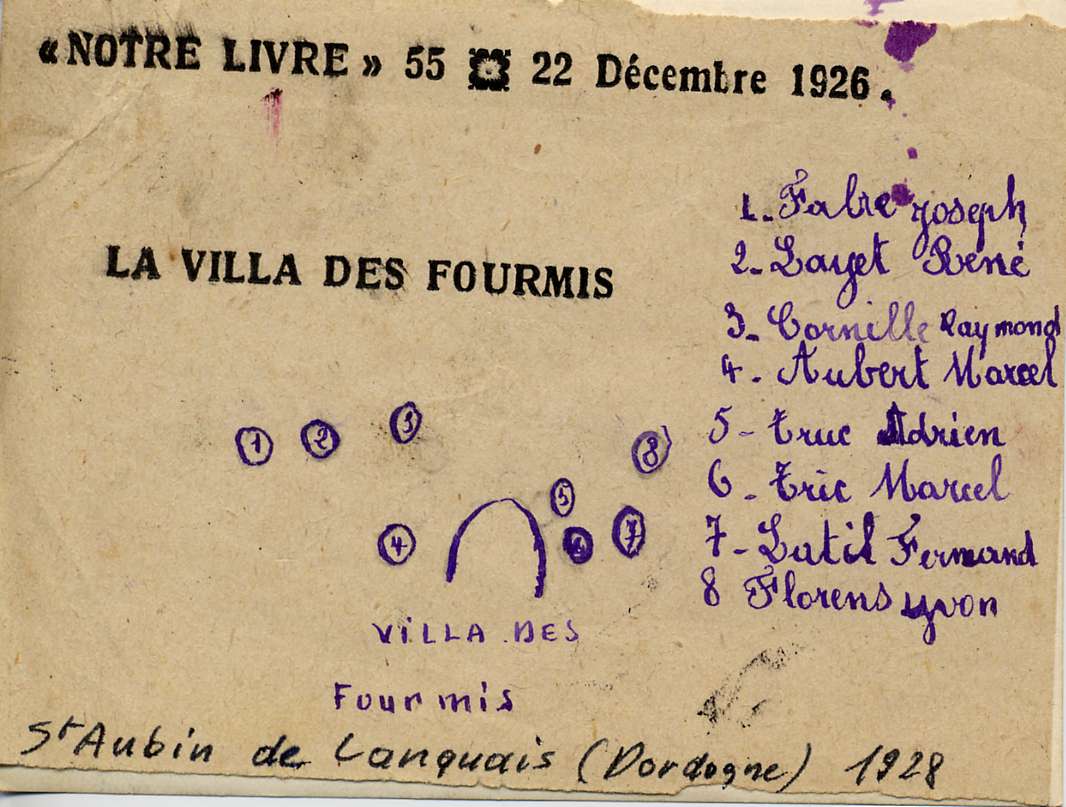 « NOTRE LIVRE » 55 22 Décembre 1926.
LA VILLA DES FOURMIS
1 - Fabre Joseph
2 - Layet René
3 - Cornille Raymond
4 - Aubert Marcel
5 - Truc Adrien
6 - Tric Marcel
7 - Latil Fernand
8 Florens yvon
1 2 3 8
5
4 6 7
ViLLA DES
Fourmis
St Aubin de Lanquais (Dordogne) 1928